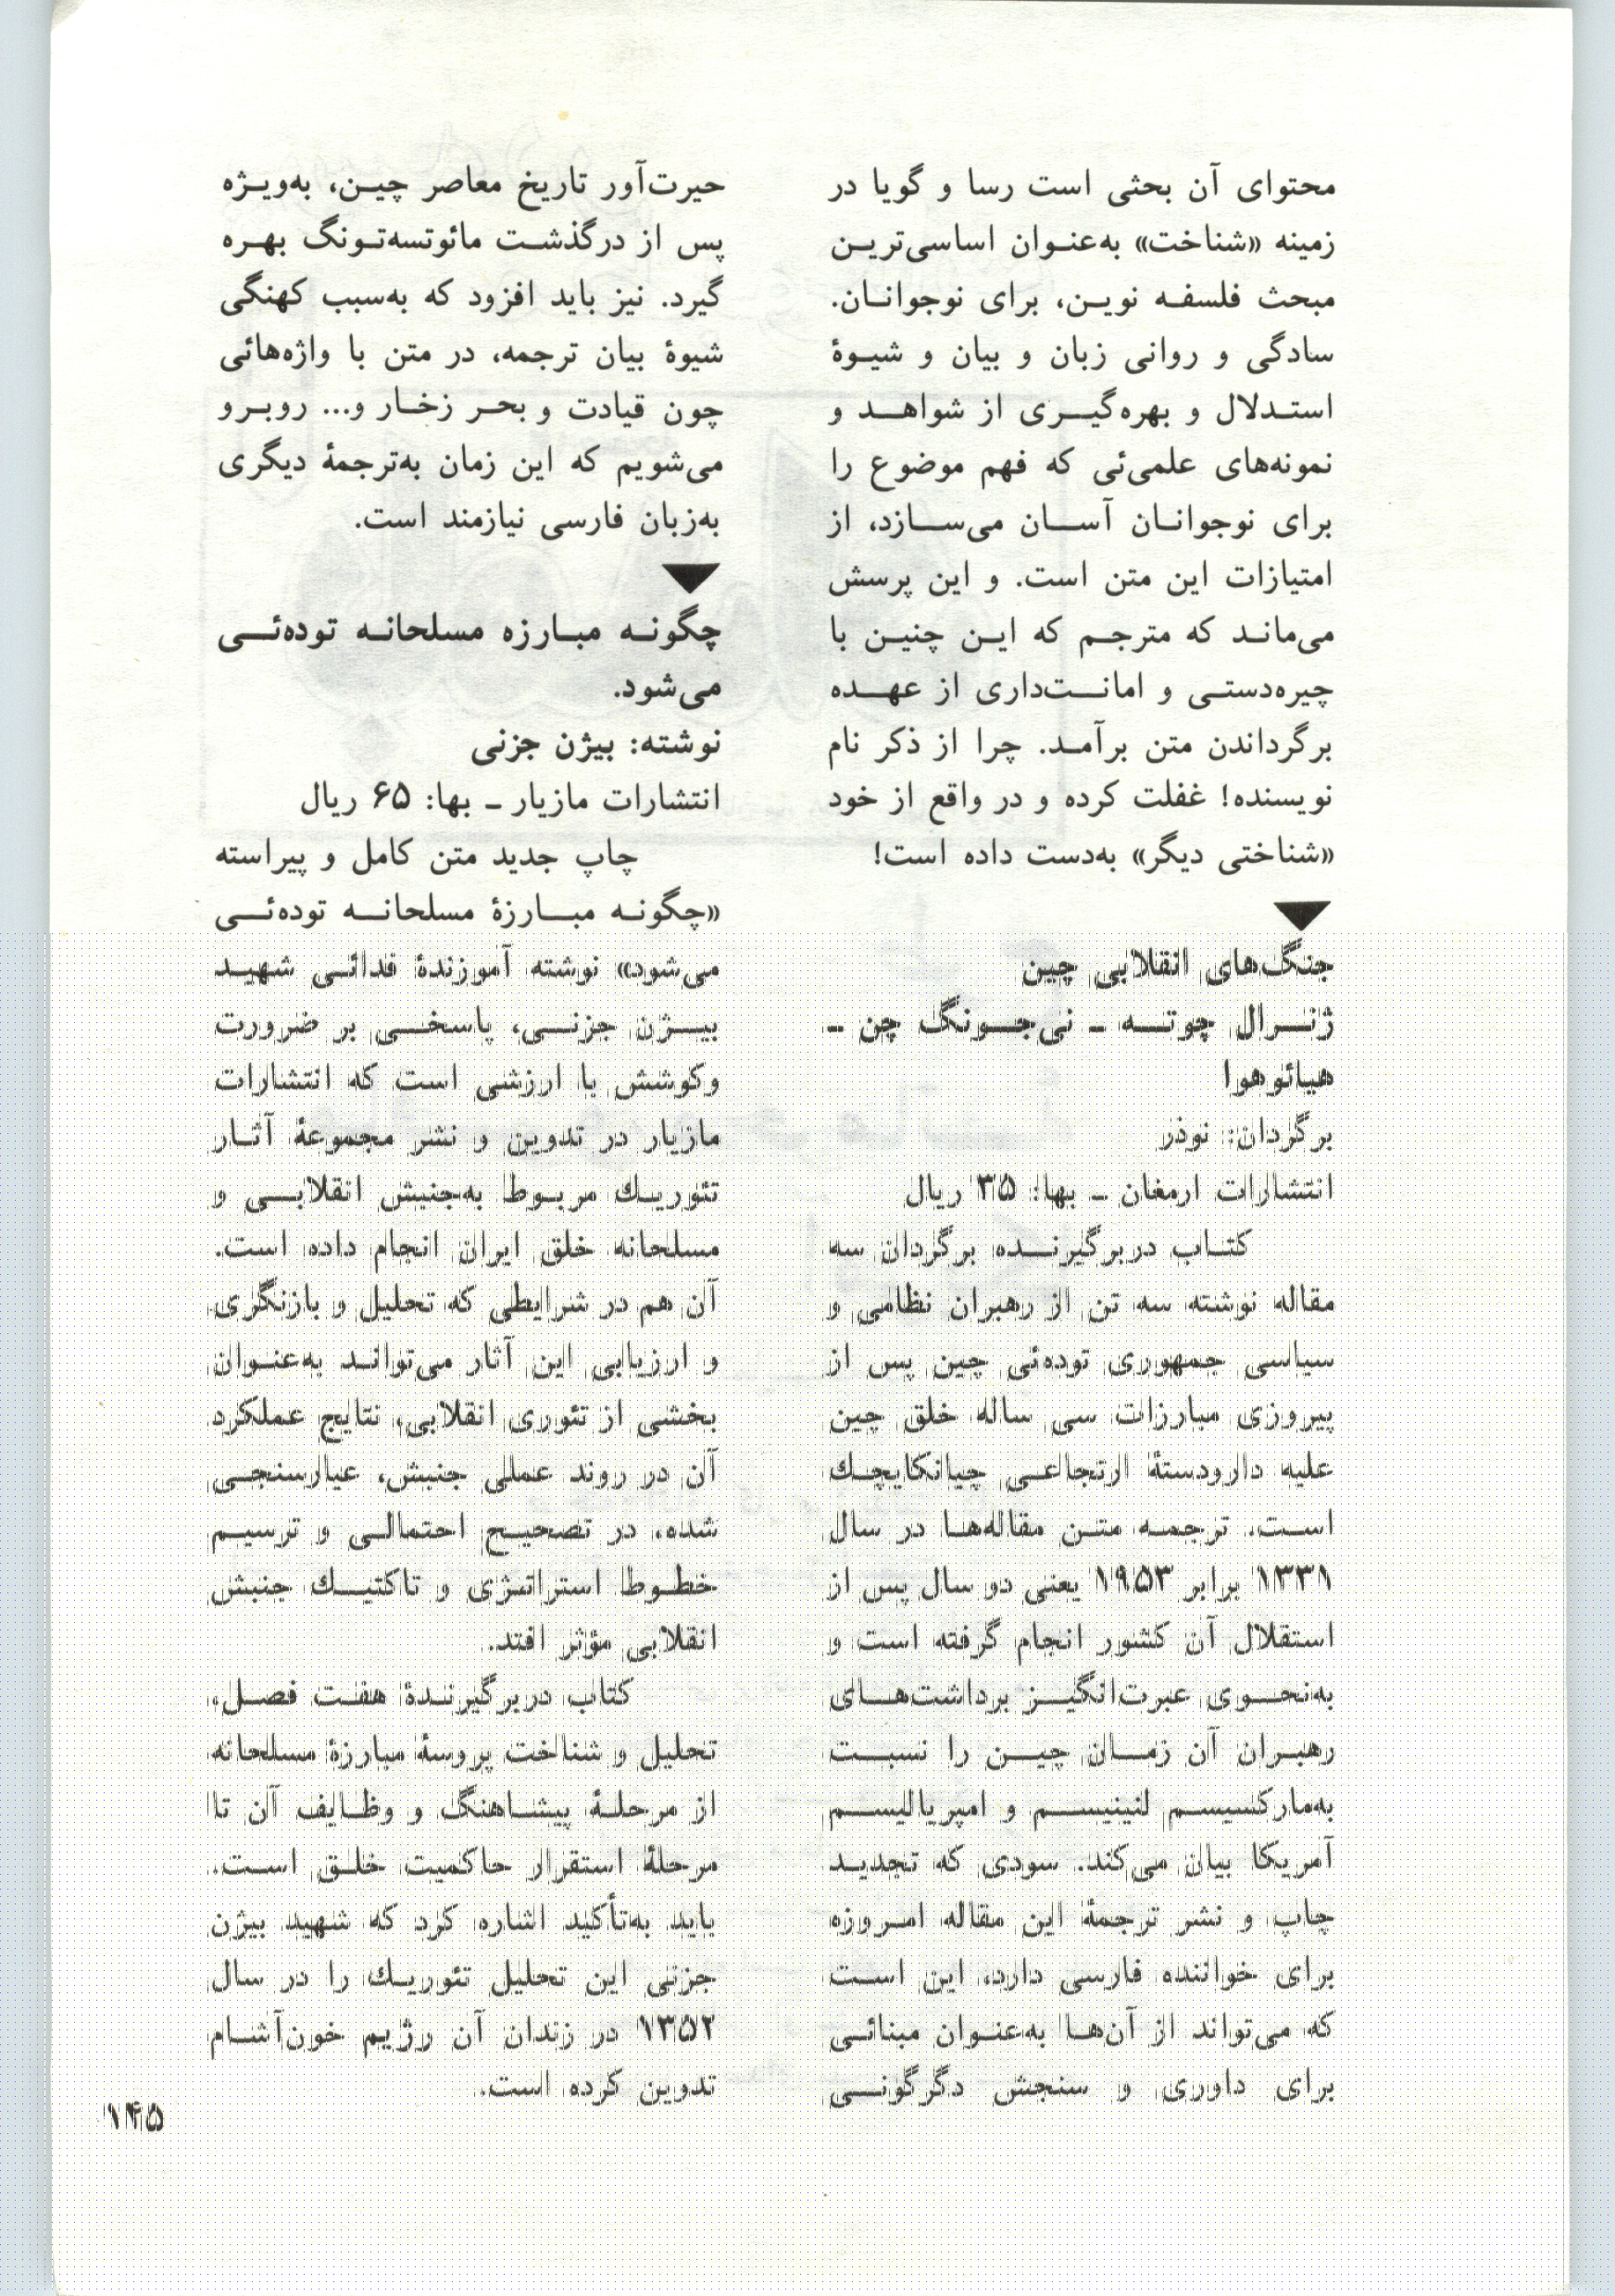 محتوای آن بحثی است رسا و گویا در
زمینه «شناخت» به‌عنوان اساسی‌ترین
مبحث فلسفه نوین، برای نوجوانان.
سادگی و روانی زبان و بیان و شیوهٔ
استدلال و بهره‌گیری از شواهد و
نمونه‌های علمی‌ئی که فهم موضوع را
برای نوجوانان آسان می‌سازد، از
امتیازات این متن است. و این پرسش
می‌ماند که مترجم که این چنین با
چیره‌دستی و امانت‌داری از عهده
برگرداندن متن برآمد. چرا از ذکر نام
نویسنده! غفلت کرده و در واقع از خود
«شناختی دیگر» به‌دست داده است!
جنگ‌های انقلابی چین
ژنرال چوته ـ نی‌جونگ چن ـ
هیائو هوا
برگردان: نوذر
انتشارات ارمغان ـ بها: ۳۵ ریال
کتاب دربرگیرنده برگردان سه
مقاله نوشته سه تن از رهبران نظامی و
سیاسی جمهوری توده‌ئی چین پس از
پیروزی مبارزات سی ساله خلق چین
علیه دارودستهٔ ارتجاعی چیانکایچك
است. ترجمه متن مقاله‌ها در سال
۱۳۳۱ برابر ۱۹۵۳ یعنی دو سال پس از
استقلال آن کشور انجام گرفته است و
به‌نحوی عبرت‌انگیز برداشت‌های
رهبران آن زمان چین را نسبت
به‌مارکسیسم لنینیسم و امپریالیسم
آمریکا بیان می‌کند. سودی که تجدید
چاپ و نشر ترجمهٔ این مقاله امروزه
برای خواننده فارسی دارد، این است
که می‌تواند از آن‌ها به‌عنوان مبنائی
برای داوری و سنجش دگرگونی
حیرت‌آور تاریخ معاصر چین، به‌ویژه
پس از درگذشت مائوتسه‌تونگ بهره
گیرد. نیز باید افزود که به‌سبب کهنگی
شیوهٔ بیان ترجمه، در متن با واژه‌هائی
چون قیادت و بحر زخار و... روبرو
می‌شویم که این زمان به‌ترجمهٔ دیگری
به‌زبان فارسی نیازمند است.
چگونه مبارزه مسلحانه توده‌ئی
می‌شود.
نوشته: بیژن جزنی
انتشارات مازیار ـ بها: ۶۵ ریال
چاپ جدید متن کامل و پیراسته
«چگونه مبارزهٔ مسلحانه توده‌ئی
می‌شود» نوشته آموزندهٔ فدائی شهید
بیژن جزنی، پاسخی بر ضرورت
وکوشش با ارزشی است که انتشارات
مازیار در تدوین و نشر مجموعهٔ آثار
تئوریك مربوط به‌جنبش انقلابی و
مسلحانه خلق ایران انجام داده است.
آن هم در شرایطی که تحلیل و بازنگری
و ارزیابی این آثار می‌تواند به‌عنوان
بخشی از تئوری انقلابی، نتایج عملکرد
آن در روند عملی جنبش، عیارسنجی
شده، در تصحیح احتمالی و ترسیم
خطوط استراتژی و تاکتیك جنبش
انقلابی مؤثر افتد.
کتاب دربرگیرندهٔ هفت فصل،
تحلیل و شناخت پروسهٔ مبارزهٔ مسلحانه
از مرحلهٔ پیشاهنگ و وظایف آن تا
مرحلهٔ استقرار حاکمیت خلق است.
باید به‌تأکید اشاره کرد که شهید بیژن
جزنی این تحلیل تئوریك را در سال
۱۳۵۲ در زندان آن رژیم خون‌آشام
تدوین کرده است.
۱۴۵